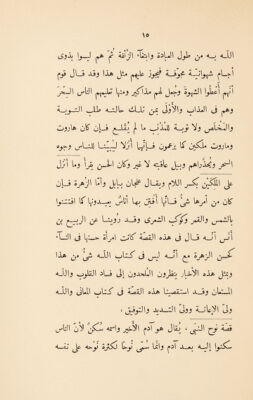 ١٥
اللـه بـه من طول العبادة وابتغآء الزلفة ثمّ هم ليسوا بذوى
أجسام شهوانيّـة مجوّفـة فيجوز عليهم مثل هذا وقد قال قوم
أنّهم أُعطوا الشهوة وجُعل لهم مذاكير ومنها تعليهم الناس السِحْرَ
وهم فى العذاب والأولَى بمن تلـك حالتـه طلب التـوبـة
والمَخْلَص ولا توبـة للمذنب ما لم يُقلـع فـإن كان هاروت
وماروت ملَكين كما يزعمون فـإنّهما أُنزلا ليُبيّنـا للنـاس وجوه
السحر ويُحذّراهم وبيل عاقبته لا غير وكان الحسن يقرأ وما أُنزل
على المَلِكَيْن بكسر اللام ويقال عِلجان ببابل وأمّا الزُهرة فـإن
كان من أمرها شىءٌ فـأنّها افتتن بها أُناسٌ يعبـدونها كما افتتنوا
بالشمس والقمر وكوكب الشعرى وقد رُوينـا عن الربيع بن
أنس أنّـه قال فى هذه القصّة كانت امرأة حسنها فى النسآء
كحسن الزهرة مع أنّـه ليس فى كتاب اللـه شىءٌ من هذا
وبمثل هذه الأخبار يتطرّق الملحدون إلى فساد القلوب واللـه
المستعان وقد استقصينا هذه القصّة فى كتاب المعانى واللـه
ولىّ الإعانـة وولىّ التسديد والتوفيق،
قصّة نوح النبىّ. يُقال هو آدم الأخير واسمه سُكنٌ لأنّ الناس
سكنوا إليـه بعـد آدم وإنّما سُمّى نوحًا لكثرة نَوْحـه على نفسه